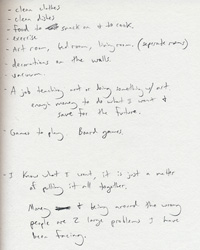 - clean clothes
- clean dishes
- food to snack on & to cook.
- exercise
- Art room, bed room, living room (seperate rooms)
- decorations on the walls
- vacuum
- A job teaching art or doing something w/ art.
enough money to do what I want &
save for the future.
- Games to play. Board games.
- I know what I want, it is just a matter
of putting it all together.
Money & being around the wrong
people are 2 large problems I have
been facing.